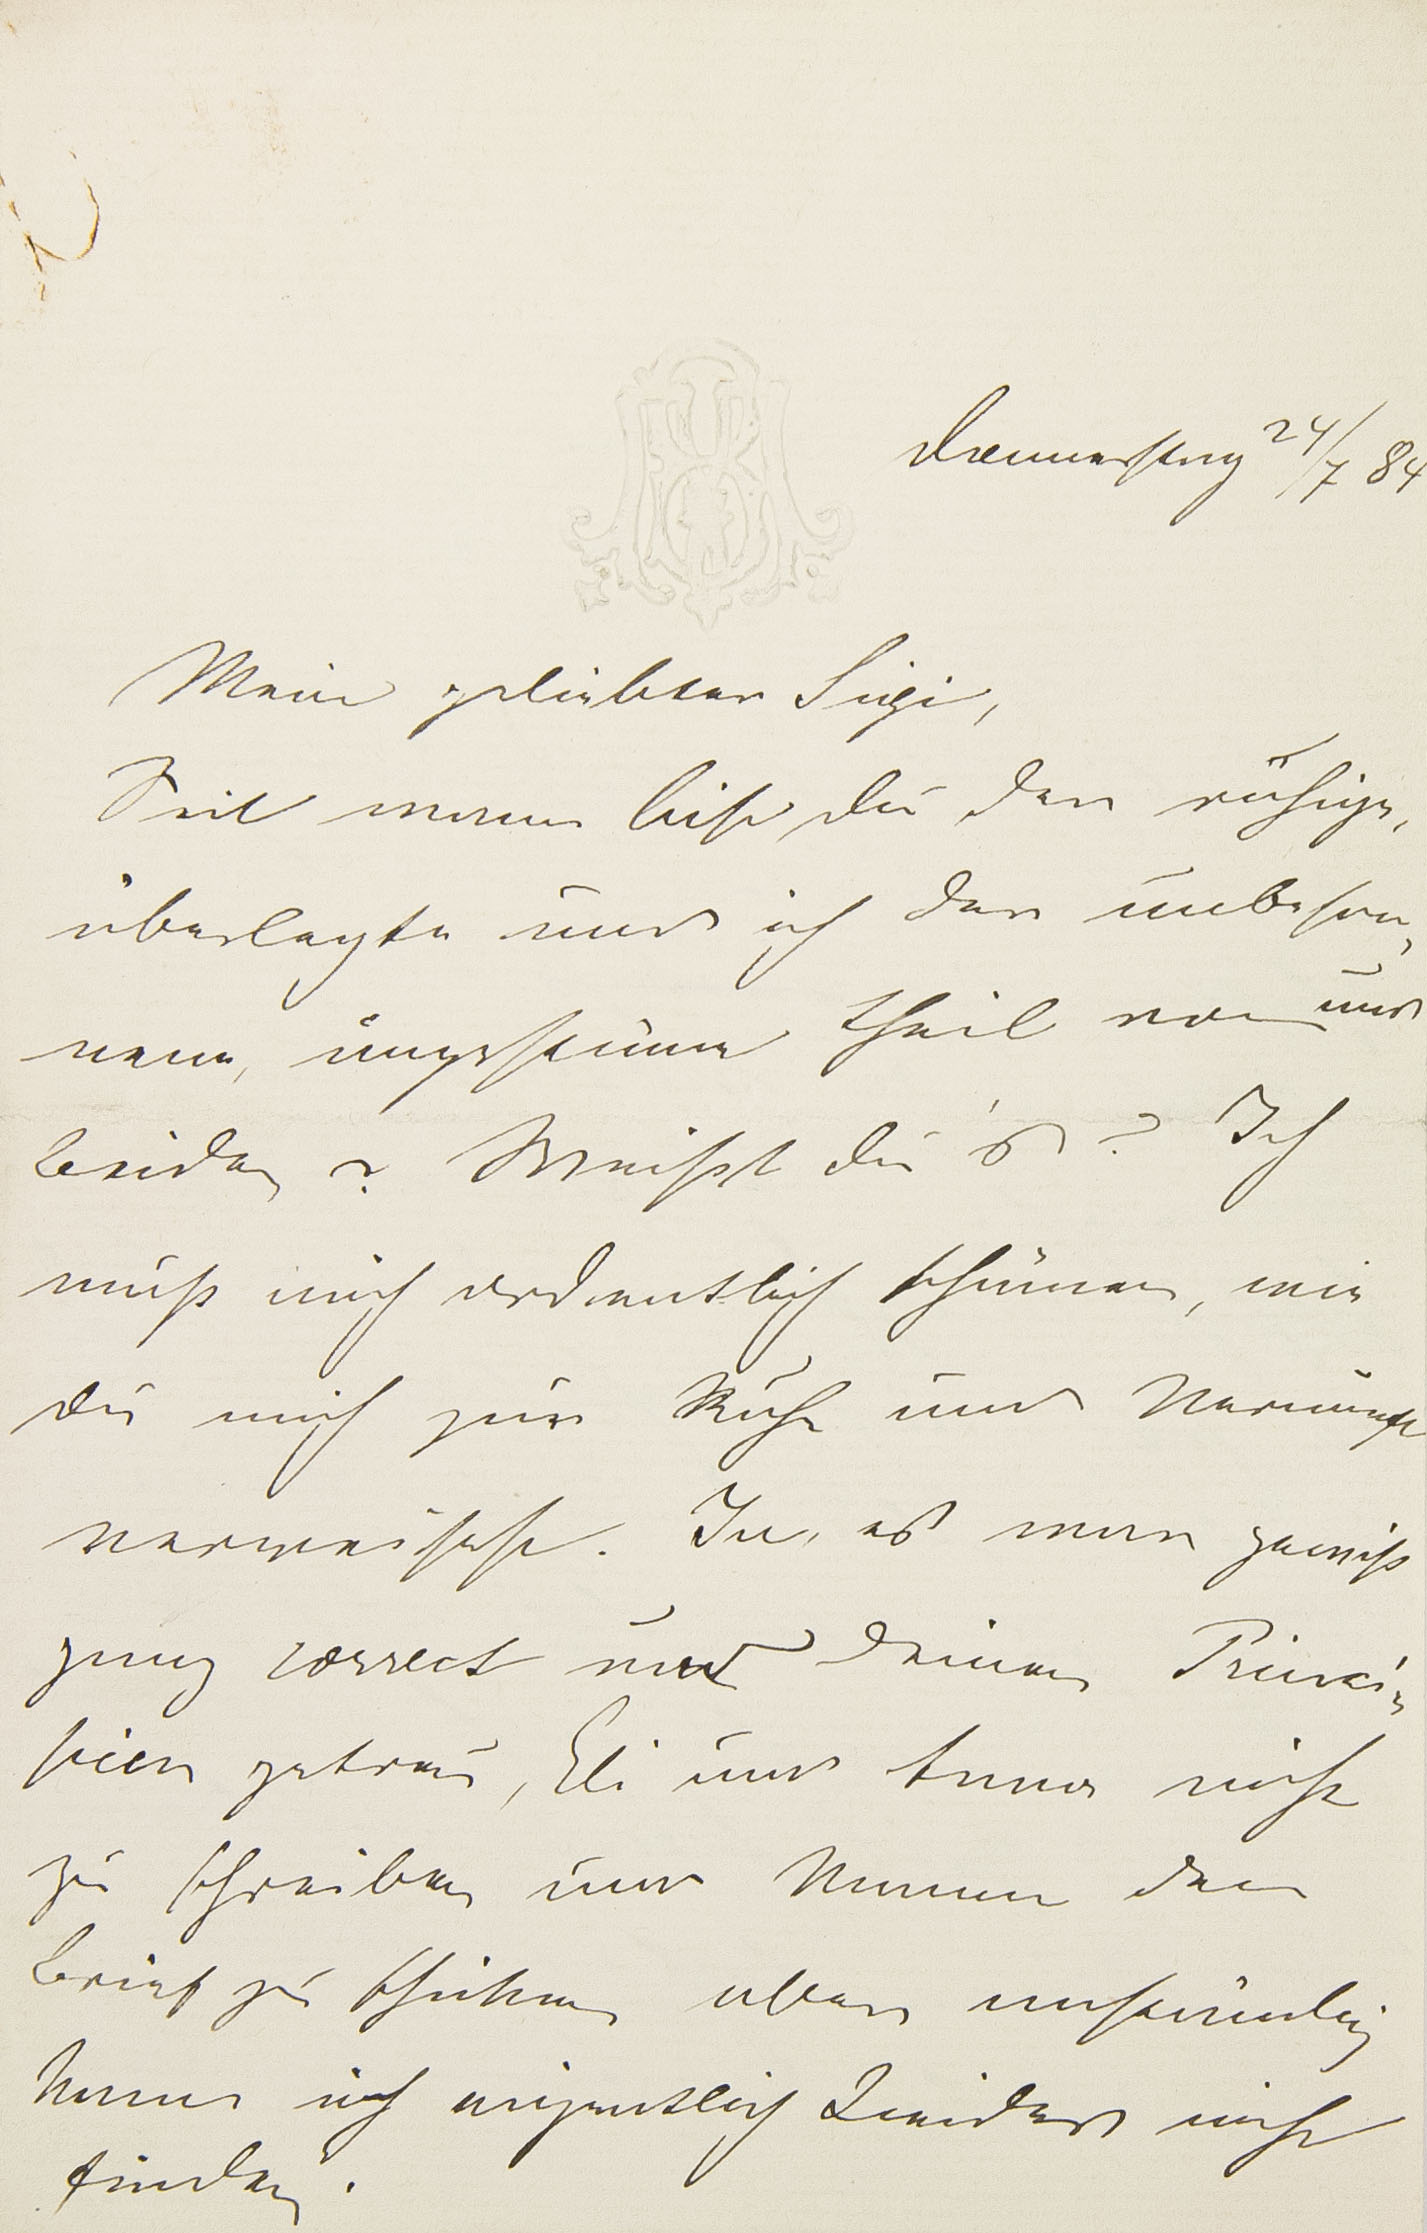 Donnerstag 24/7 84
Mein geliebter Sigi,
Seit wann bist Du der ruhige,
überlegte und ich der unbeson-
nene, ungestüme Theil von uns
beiden? Weißt Du's? Ich
muß mich ordentlich schämen, wie
Du mich zur Ruhe und Vernunft
verweisest. Ja, es war gewiß
ganz correct und Deinen Princi-
pien getreu, Eli und Anna nicht
zu schreiben und Mama den
Brief zu schicken aber anständig
kann ich eigentlich Beides nicht
finden.